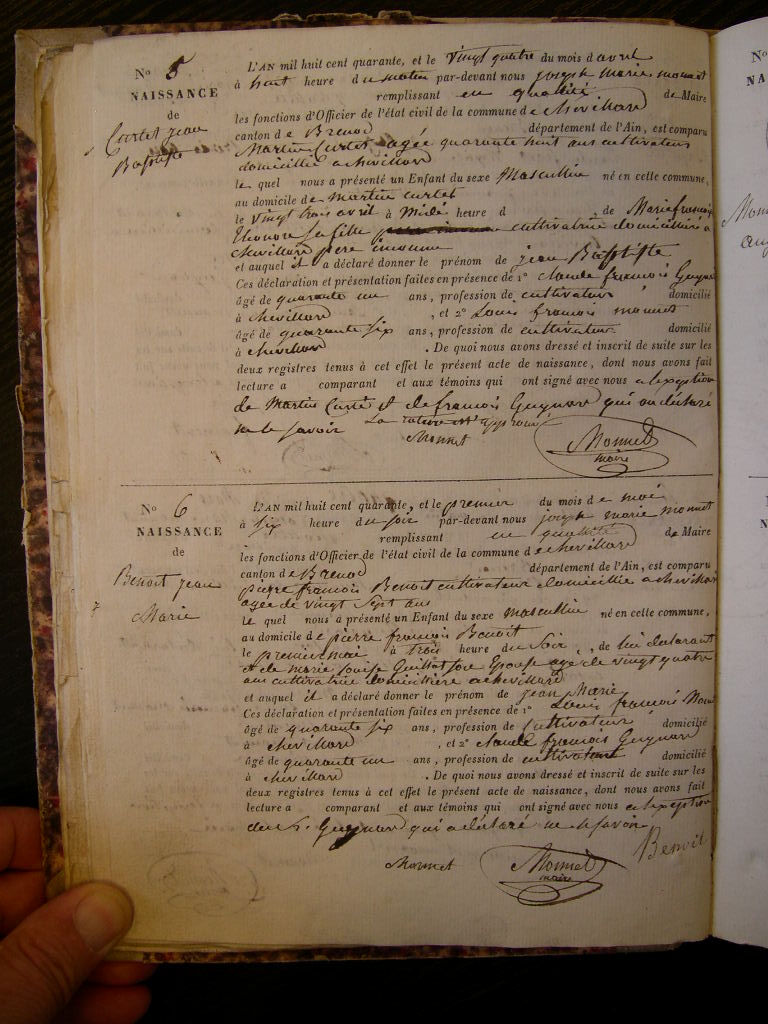 No 5
NAISSANCE
de
Curtet jean
Baptiste
L'AN mil huit cent quarante, et le vingt quatre du mois d'avril
à huit heure du matin par-devant nous joseph marie monnet
remplissant en qualité de Maire
les fonctions d'Officier de l'état civil de la commune de chevillard
canton de Brenod département de l'Ain, est comparu
Martin Curtet agée quarante huit ans cultivateur
domicillié a chevillard
le quel nous a présenté un Enfant du sexe Masculin né en cette commune,
au domicile de martin curtet
le vingt trois avril à Midi heure d de Marie françoise
Elionore sa fille cultivatrice domicilière a
chevillard père inconnue
et auquel il a déclaré donner le prénom de jean Baptiste
Ces déclaration et présentation faites en présence de 1° claude françois Guynard
âgé de quarante un ans, profession de cultivateur domicilié
à chevillard, et 2° Louis françois monnet
âgé de quarante six ans, profession de cultivateur domicilié
à chevillard. De quoi nous avons dressé et inscrit de suite sur les
deux registres tenus à cet effet le présent acte de naissance, dont nous avons fait
lecture a comparant et aux témoins qui ont signé avec nous a lexeption
de Martin Curté et de françois Guynard qui on déclaré
ne le savoir La rature est approuvé
Monnet Monnet
maire
No 6
NAISSANCE
de
Benoit jean
Marie
L'AN mil huit cent quarante, et le premier du mois de mai
à six heure du soir par-devant nous joseph marie monnet
remplissant en qualité de Maire
les fonctions d'Officier de l'état civil de la commune de chevillard
canton de Brenod département de l'Ain, est comparu
pierre françois Benoit cultivateur domicillie a chevillard
agée de vingt sept ans
le quel nous a présenté un Enfant du sexe masculin né en cette commune,
au domicile de pierre françois Benoit
le premier mai à trois heure du soir, de lui declarant
et de marie Louise Guillot son Epouse agé de vingt quatre
ans cultivatrice domicilière a chevillard
et auquel il a déclaré donner le prénom de jean Marie
Ces déclaration et présentation faites en présence de 1° Louis françois Monnet
âgé de quarante six ans, profession de Cultivateur domicilié
à chevillard, et 2° claude françois Guynard
âgé de quarante un ans, profession de cultivateur domicilié
à chevillard. De quoi nous avons dressé et inscrit de suite sur les
deux registres tenus à cet effet le présent acte de naissance, dont nous avons fait
lecture a comparant et aux témoins qui ont signé avec nous a lexeption
Guynard qui a déclaré ne le savoir
Benoit
Monnet Monnet
maire